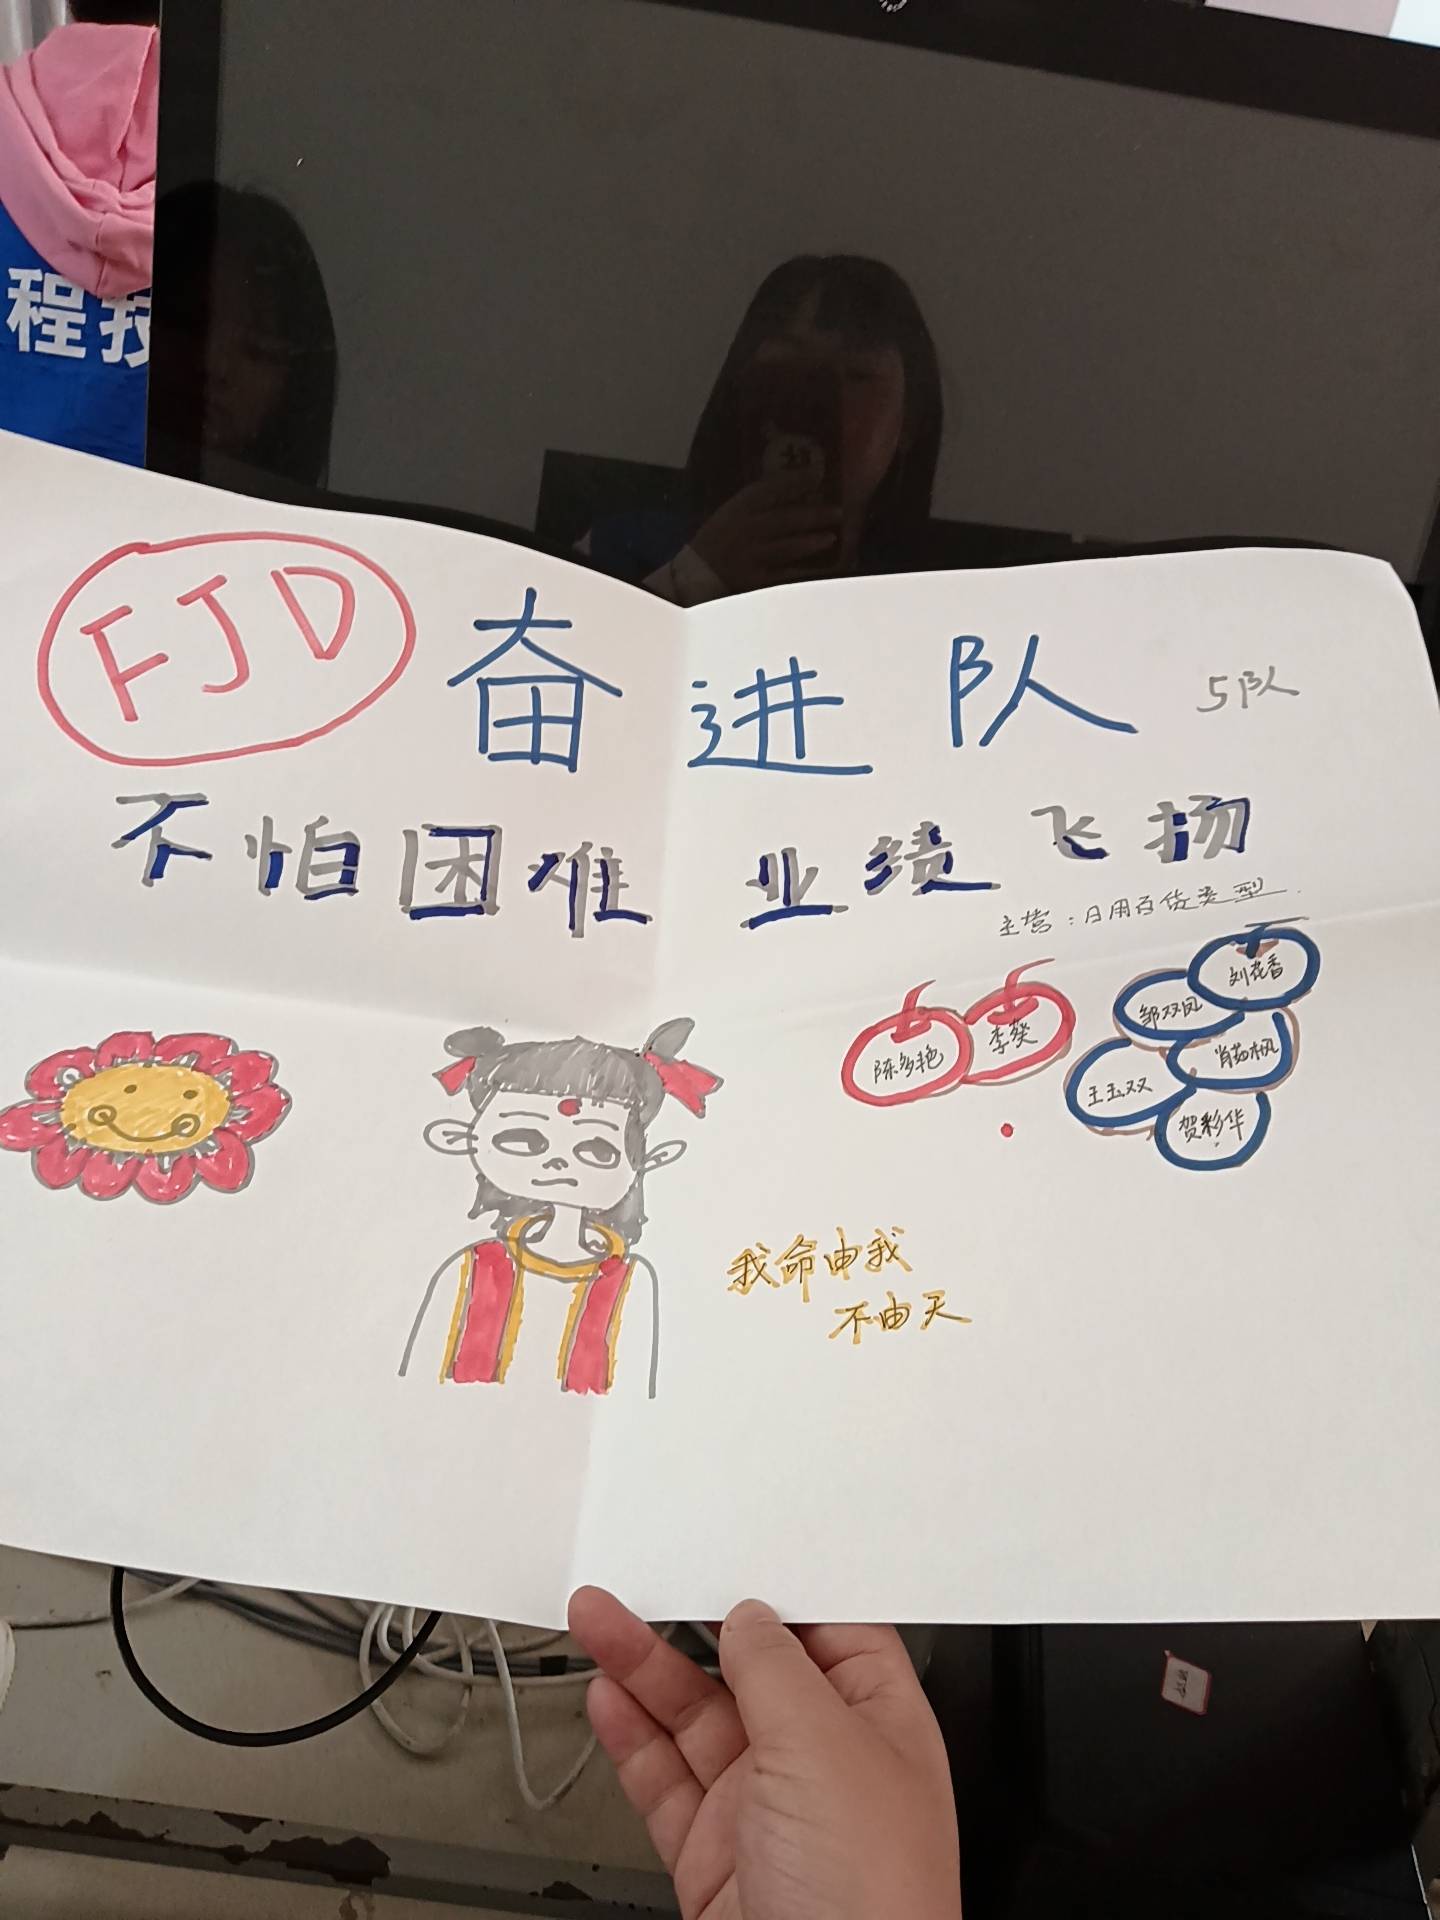 程技
FJD
奋进队 5队
不怕困难 业绩飞扬
主营：日用百货类型
刘花香
邹双凤
李葵
陈多艳
肖茹枫
王玉双
贺彩华
我命由我
不由天